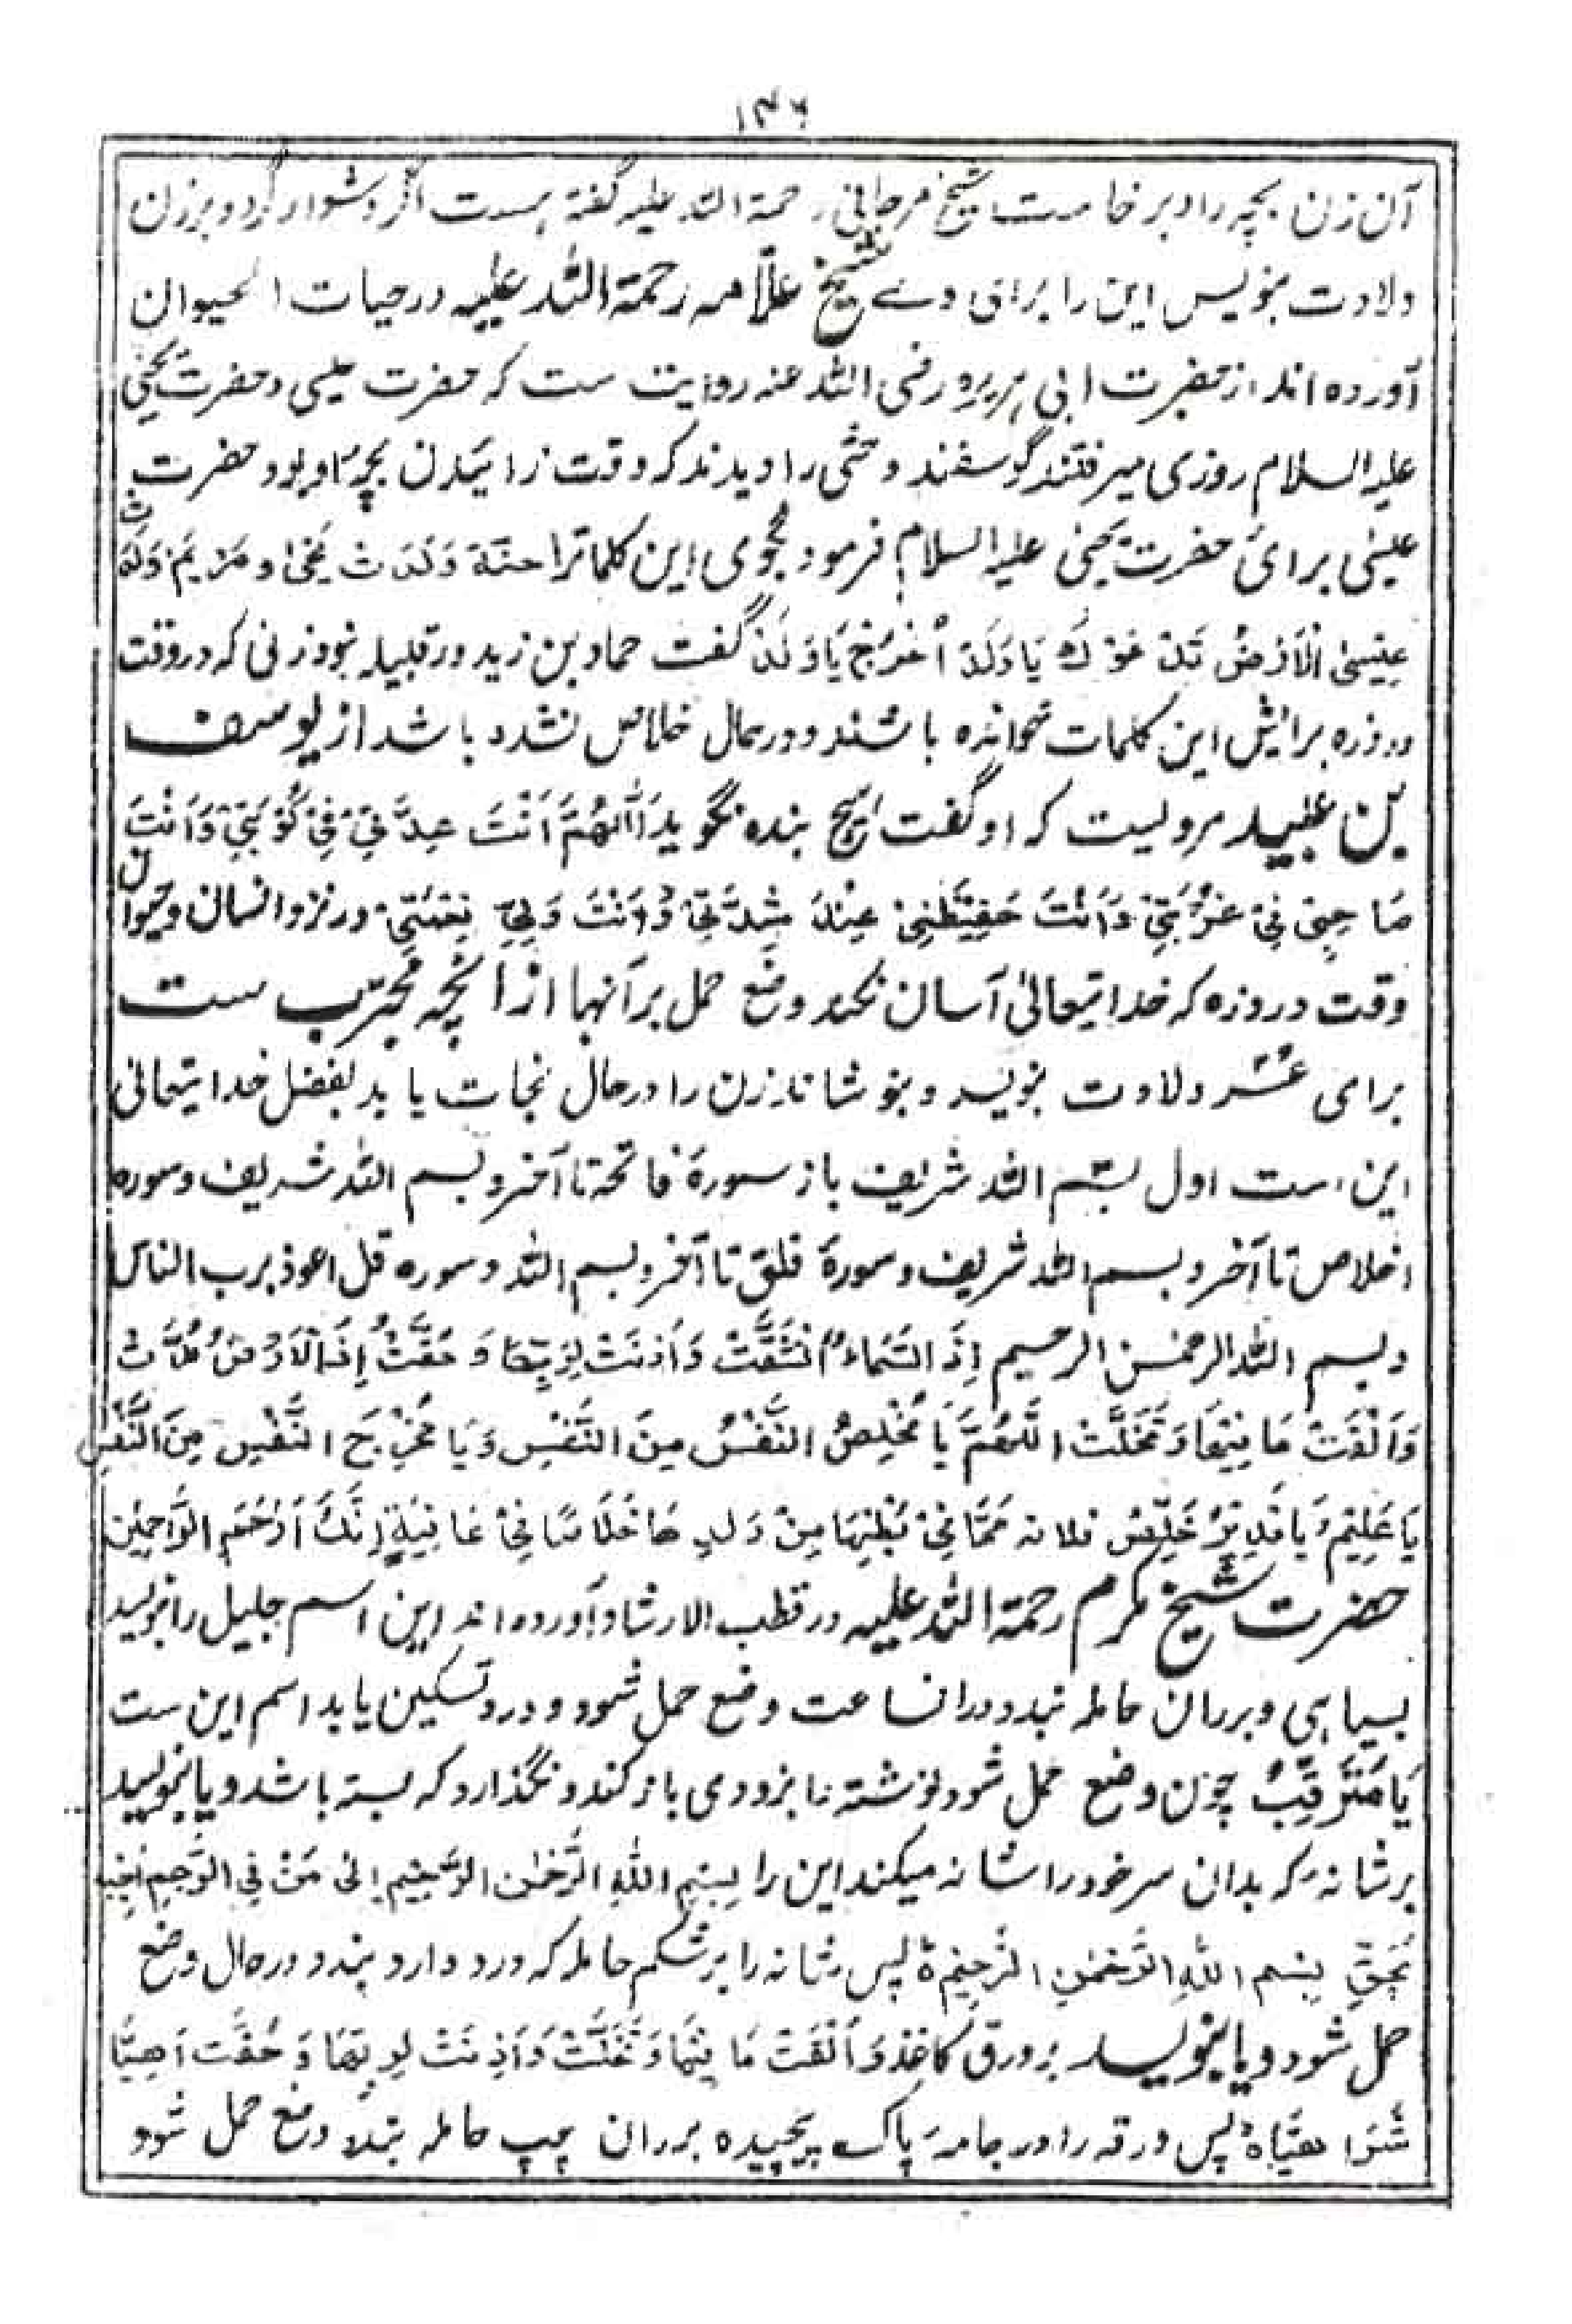 ۱۳۶
آن زن بچه را و برخاست شیخ مرجانی رحمة الله علیه گفته هست اگر دشوار گردد بر زن
ولادت بنویس این را برای وے شیخ علّامه رحمة الله علیه در حیات الحیوان
آورده اند از حضرت ابی هریره رضی الله عنه روایت ست که حضرت عیسی و حضرت یحیٰی
علیه السلام روزی میرفتند گوسفند وحشی را دیدند که وقت زائیدن بچۂ او بود حضرت
عیسٰی برائ حضرت یحیٰی علیه السلام فرمود بگوی این کلمات را حنة ولدت یحیٰ و مریم ولدت
عیسٰی الارض تدعوك یا ولد اخرج یا ولد گفت حماد بن زید در قبیله نبود زنی که در وقت
درد زه برایش این کلمات خوانده باشند و در حال خلاص نشده باشد از یوسف
بن عبید مرویست که او گفت هیچ بنده نگوید اَللّٰهُمَّ اَنْتَ عِدَّتِیْ فِیْ كُرْبَتِیْ وَاَنْتَ
صَاحِبِیْ فِیْ غُرْبَتِیْ وَاَنْتَ حَفِیْظِنِیْ عِنْدَ شِدَّتِیْ وَاَنْتَ وَلِیِّ نِعْمَتِیْ در نزد انسان و حیوان
وقت درد زه که خدایتعالیٰ آسان نکند وضع حمل بر آنها از آنچه مجرّب ست
برای عُسر ولادت بنویسد و بنوشاند زن را در حال نجات یابد بفضل خدایتعالیٰ
این ست اول بسم الله شریف باز سورۀ فاتحه تا آخر و بسم الله شریف و سوره
اخلاص تا آخر و بسم الله شریف و سورۀ فلق تا آخر و بسم الله و سوره قل اعوذ برب الناس
و بسم الله الرحمٰن الرحیم اِذَ السَّمَاءُ انْشَقَّتْ وَاَذِنَتْ لِرَبِّهَا وَ حُقَّتْ اِذَالْاَرْضُ مُدَّتْ
وَاَلْقَتْ مَا فِیْهَا وَتَخَلَّتْ اللّٰهُمَّ یَا مُخْلِصُ النَّفْسُ مِنَ النَّفْسِ وَیَا مُخْرِجَ النَّفْسِ مِنَ النَّفْسِ
یَا عَلِیْمُ یَا قَدِیْرُ خَلِّصْ فلانه مِمَّا فِیْ بَطْنِهَا مِنْ وَلدِهَا خَلَاصًا فِیْ عَافِیَةٍ اِنَّكَ اَرْحَمُ الرَّاحِمِیْنَ
حضرت شیخ مکرم رحمة الله علیه در قطب الارشاد آورده اند این اسم جلیل را بنویسد
بسیاهی و بر ران حامله بندد در انساعت وضع حمل شود و درد تسکین یابد اسم این ست
یَا مُتَرَقِّبُ چون وضع حمل شود نوشته را بزودی باز کند و نگذارد که بسته باشد و یا بنویسد
بر شانۀ که بدان سر خود را شانه میکند این را بِسْمِ اللّٰهِ الرَّحْمٰنِ الرَّحِیْمِ الی مَنْ فِی الرَّحِمِ
بِحَقِّ بِسْمِ اللّٰهِ الرَّحْمٰنِ الرَّحِیْمِ پس شانه را بر شکم حامله که درد دارد بندد در حال وضع
حمل شود و یا بنویسد بر ورق کاغذ وَاَلْقَتْ مَا فِیْهَا وَتَخَلَّتْ وَاَذِنَتْ لِرَبِّهَا وَحُقَّتْ اَهْیَا
شَرَا هَیَّا پس ورقه را در جامۀ پاک پیچیده بر ران چپ حامله بندد وضع حمل شود